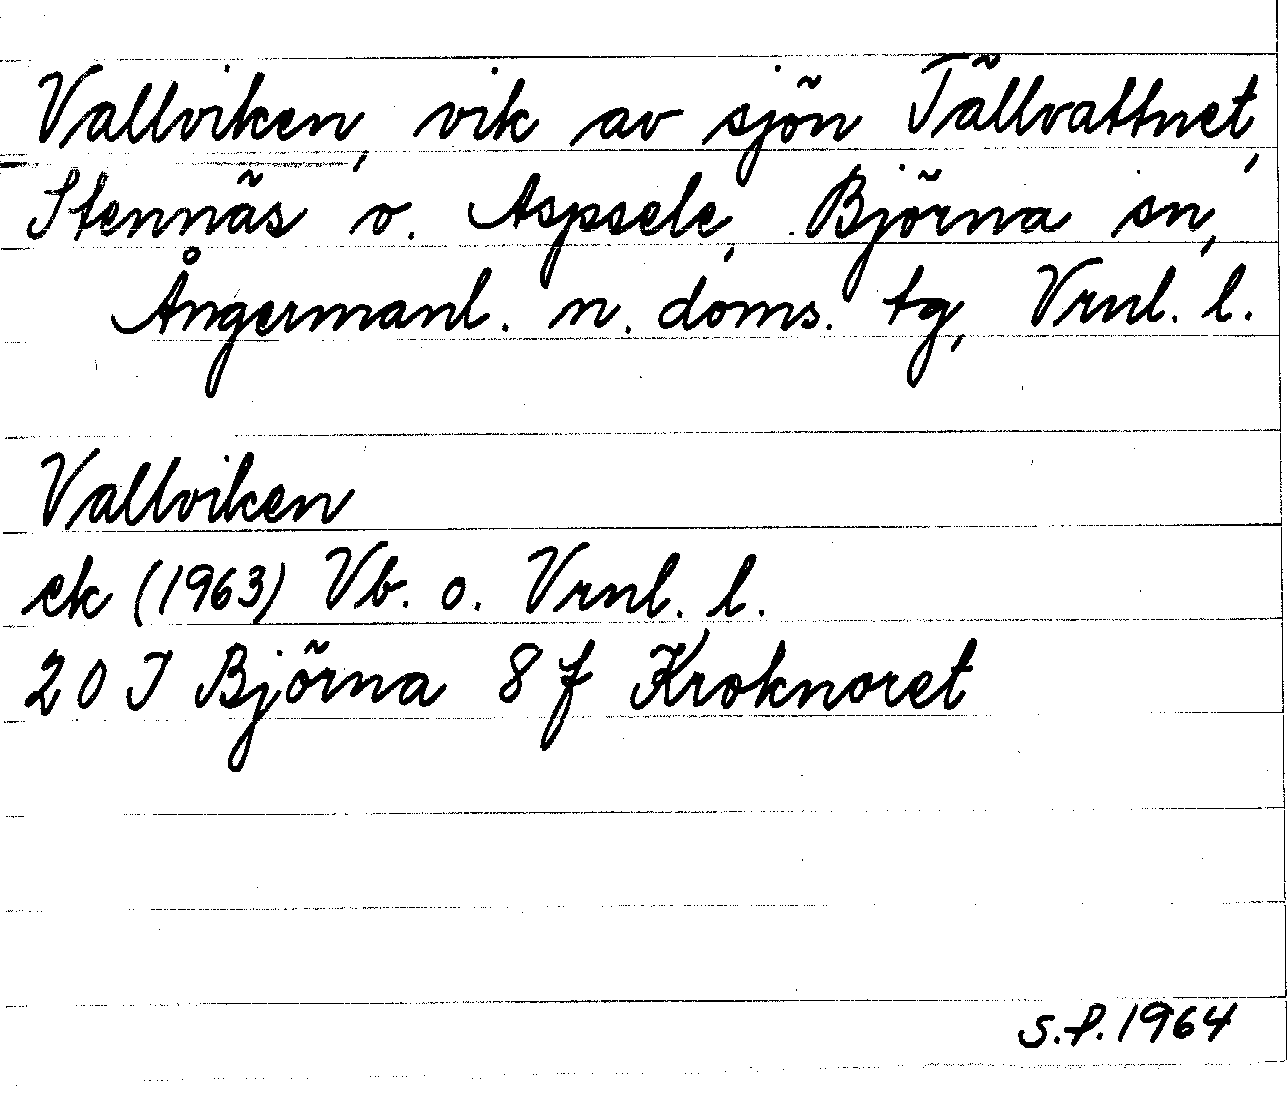 Vallviken, vik av sjön Tällvattnet,
Stennäs o. Aspsele, Björna sn,
Ångermanl. n. doms. tg, Vrnl. l.
Vallviken
ek (1963) Vb. o. Vrnl. l.
20 J Björna 8 f Kroknoret
S.P. 1964